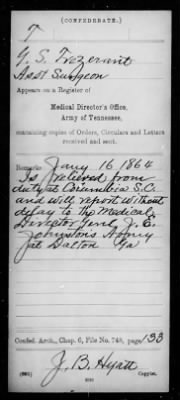 (CONFEDERATE.)
T
Y. S. Trezevant
Asst Surgeon
Appears on a Register of
Medical Director's Office,
Army of Tennessee,
containing copies of Orders, Circulars and Letters
received and sent.
Remarks: Jany 16, 1864
Is relieved from
duty at Columbia S.C.
and will report without
delay to the Medical
Director Genl J. E.
Johnston's Army
at Dalton Ga
Confed. Arch., Chap. 6, File No. 748, page 133
J. B. Hyatt
Copyist.